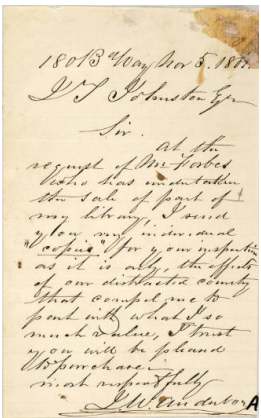 180 B Way Nov 5. 1861.
J T Johnston Esqr
Sir.
At the
request of Mr Forbes
who has undertaken
the sale of part of
my library, I send
you my individual
"copies" for your inspection
as it is only, the effects
of our distracted country
that compel me to
part with what I so
much value, I trust
you will be pleased
to purchase.
most respectfully
J. W.
A